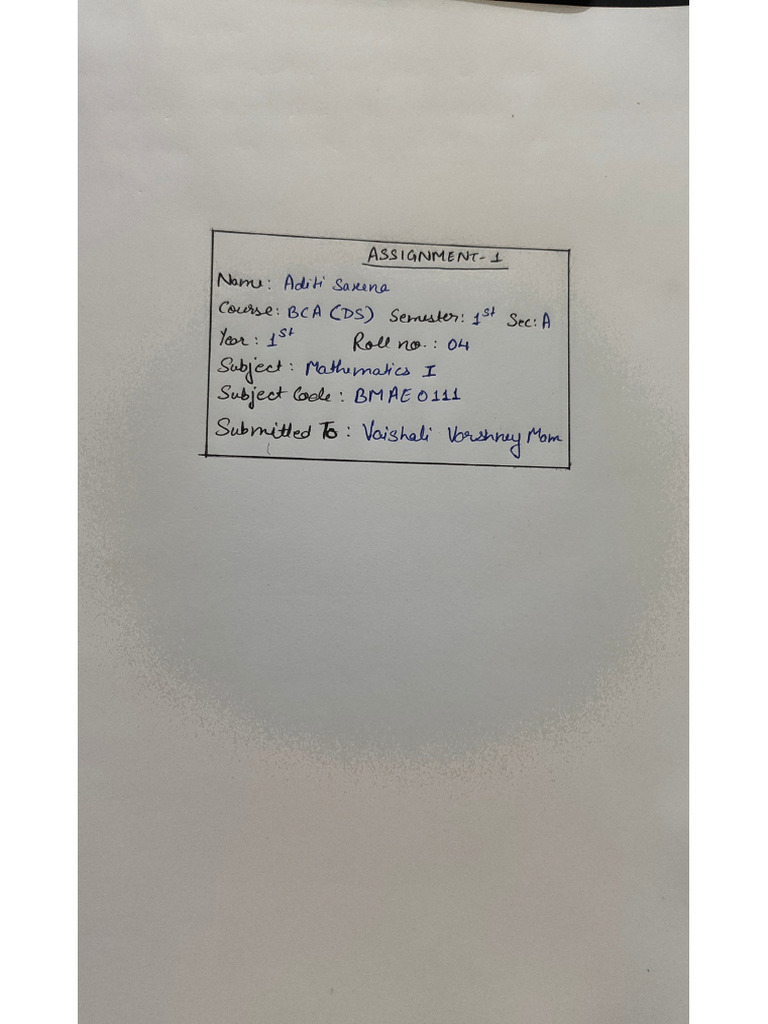 ASSIGNMENT-1
Name: Aditi Saxena
Course: BCA (DS) Semester: 1st Sec: A
Year: 1st Roll no.: 04
Subject: Mathematics I
Subject Code: BMAE0111
Submitted To: Vaishali Varshney Mam